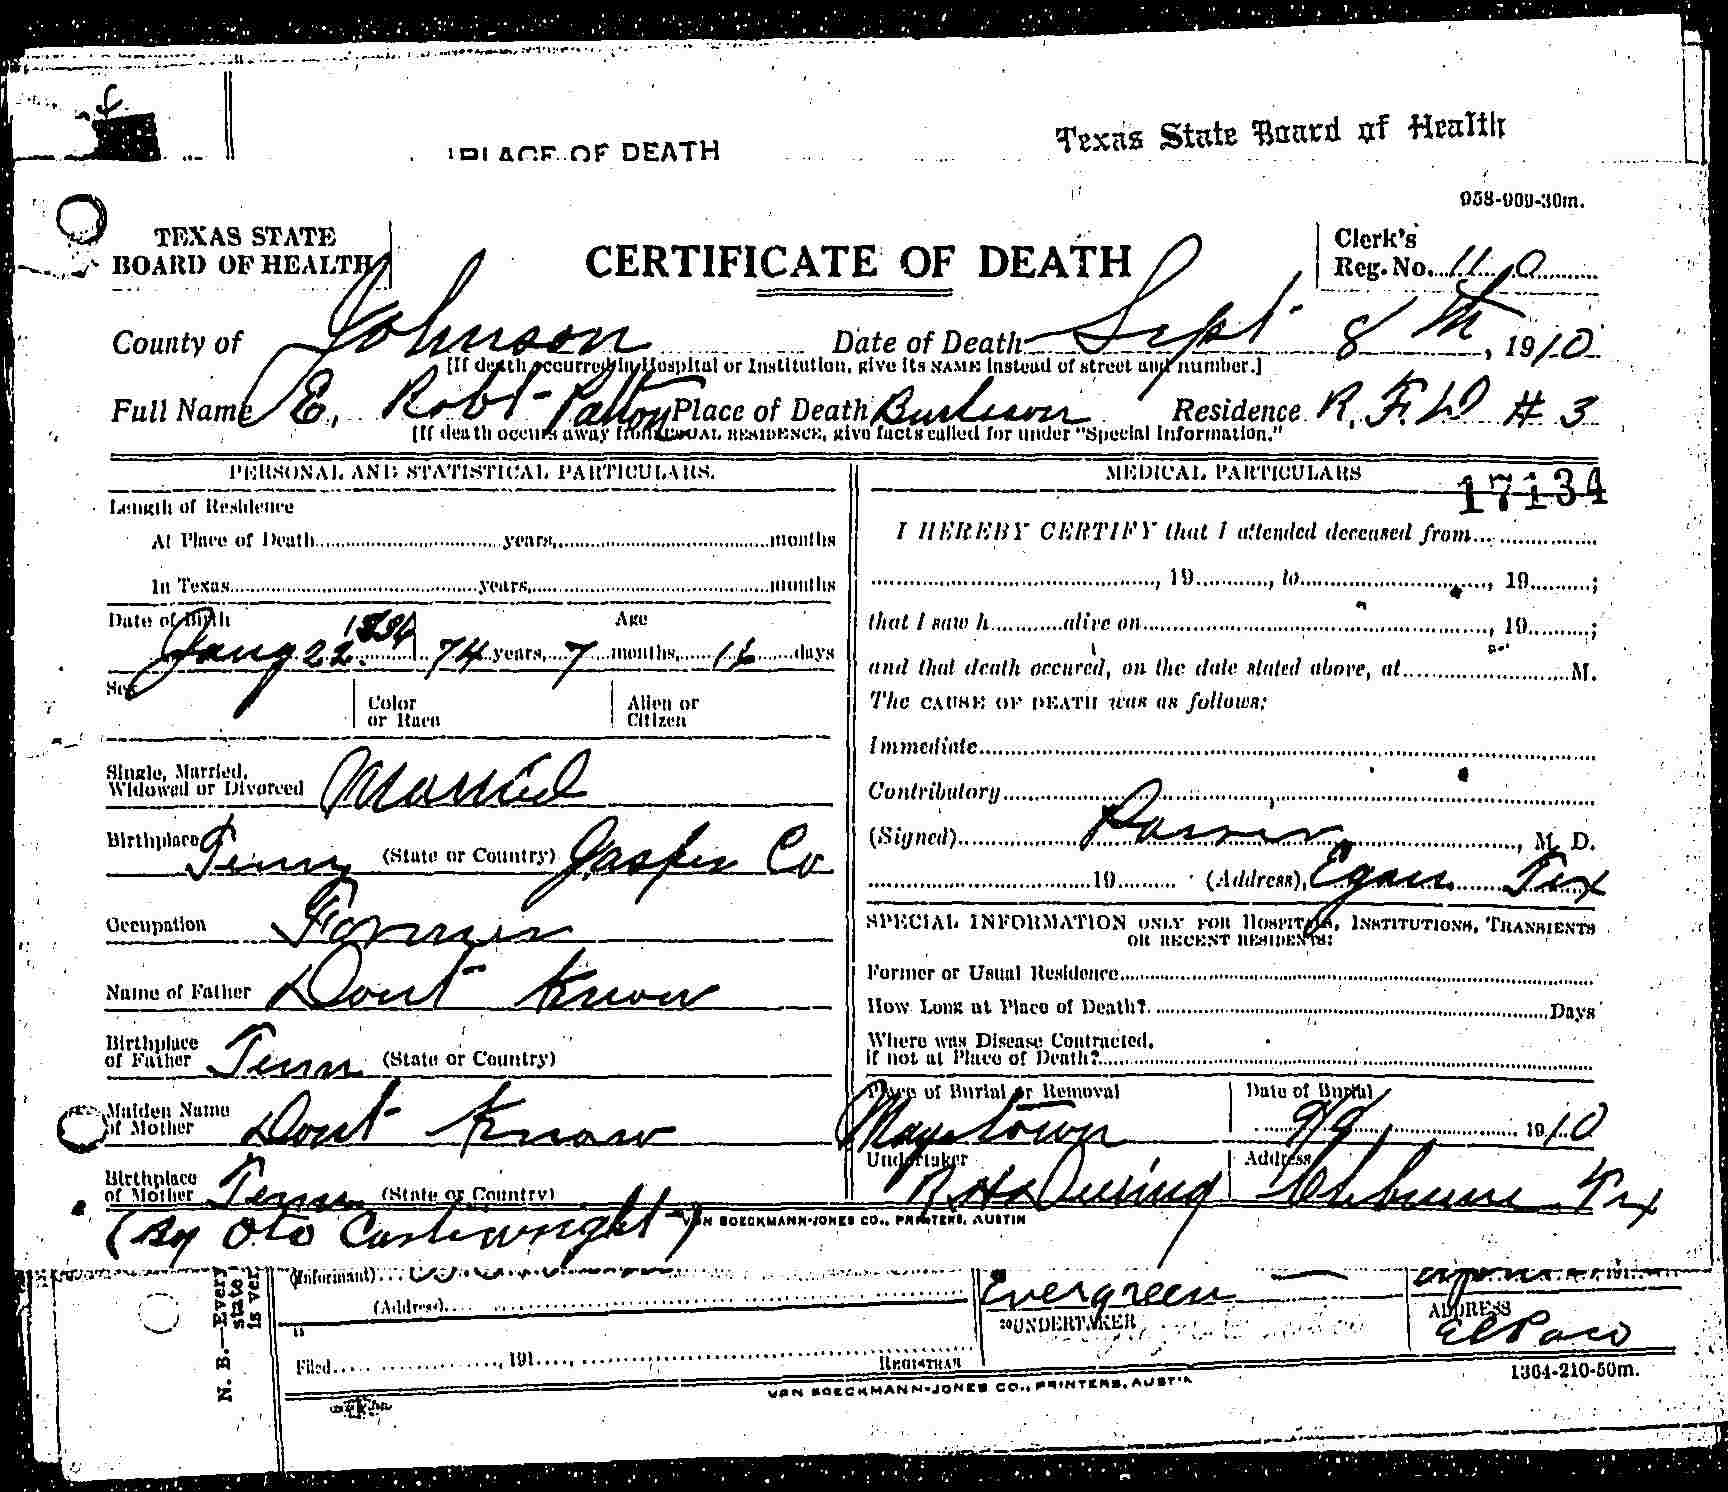 PLACE OF DEATH
Texas State Board of Health
958-909-30m.
TEXAS STATE
BOARD OF HEALTH
CERTIFICATE OF DEATH
Clerk's
Reg. No. 110
County of Johnson Date of Death Sept 8th, 1910
[If death occurred in Hospital or Institution, give its NAME instead of street and number.]
Full Name E. Robt Patton Place of Death Burleson Residence R. F. D #3
[If death occurs away from USUAL RESIDENCE, give facts called for under "Special Information."]
PERSONAL AND STATISTICAL PARTICULARS.
Length of Residence
At Place of Death years, months
In Texas years, months
Date of Birth Age
Jany 22. 1836 74 years, 7 months, 16 days
Sex Color or Race Alien or Citizen
Single, Married, Widowed or Divorced Married
Birthplace Tenn (State or Country) Jasper Co
Occupation Farmer
Name of Father Dont Know
Birthplace of Father Tenn (State or Country)
Maiden Name of Mother Dont Know
Birthplace of Mother Tenn (State or Country)
(By Oto Cartwright)
MEDICAL PARTICULARS
17134
I HEREBY CERTIFY that I attended deceased from
, 19 , to , 19 ;
that I saw h alive on , 19 ;
and that death occured, on the date stated above, at M.
The CAUSE OF DEATH was as follows:
Immediate
Contributory
(Signed) , M. D.
19 (Address), Egan Tex
SPECIAL INFORMATION ONLY FOR HOSPITALS, INSTITUTIONS, TRANSIENTS
OR RECENT RESIDENTS:
Former or Usual Residence
How Long at Place of Death? Days
Where was Disease Contracted,
if not at Place of Death?
Place of Burial or Removal Date of Burial
Maystown 9/9, 1910
Undertaker Address
Cleburne Tex
VON BOECKMANN-JONES CO., PRINTERS, AUSTIN
N. B.—Every
state
is ver
(Informant)
(Address)
Filed , 191 , REGISTRAR
Evergreen
20 UNDERTAKER
ADDRESS
El Paso
VON BOECKMANN-JONES CO., PRINTERS, AUSTIN
1364-210-50m.